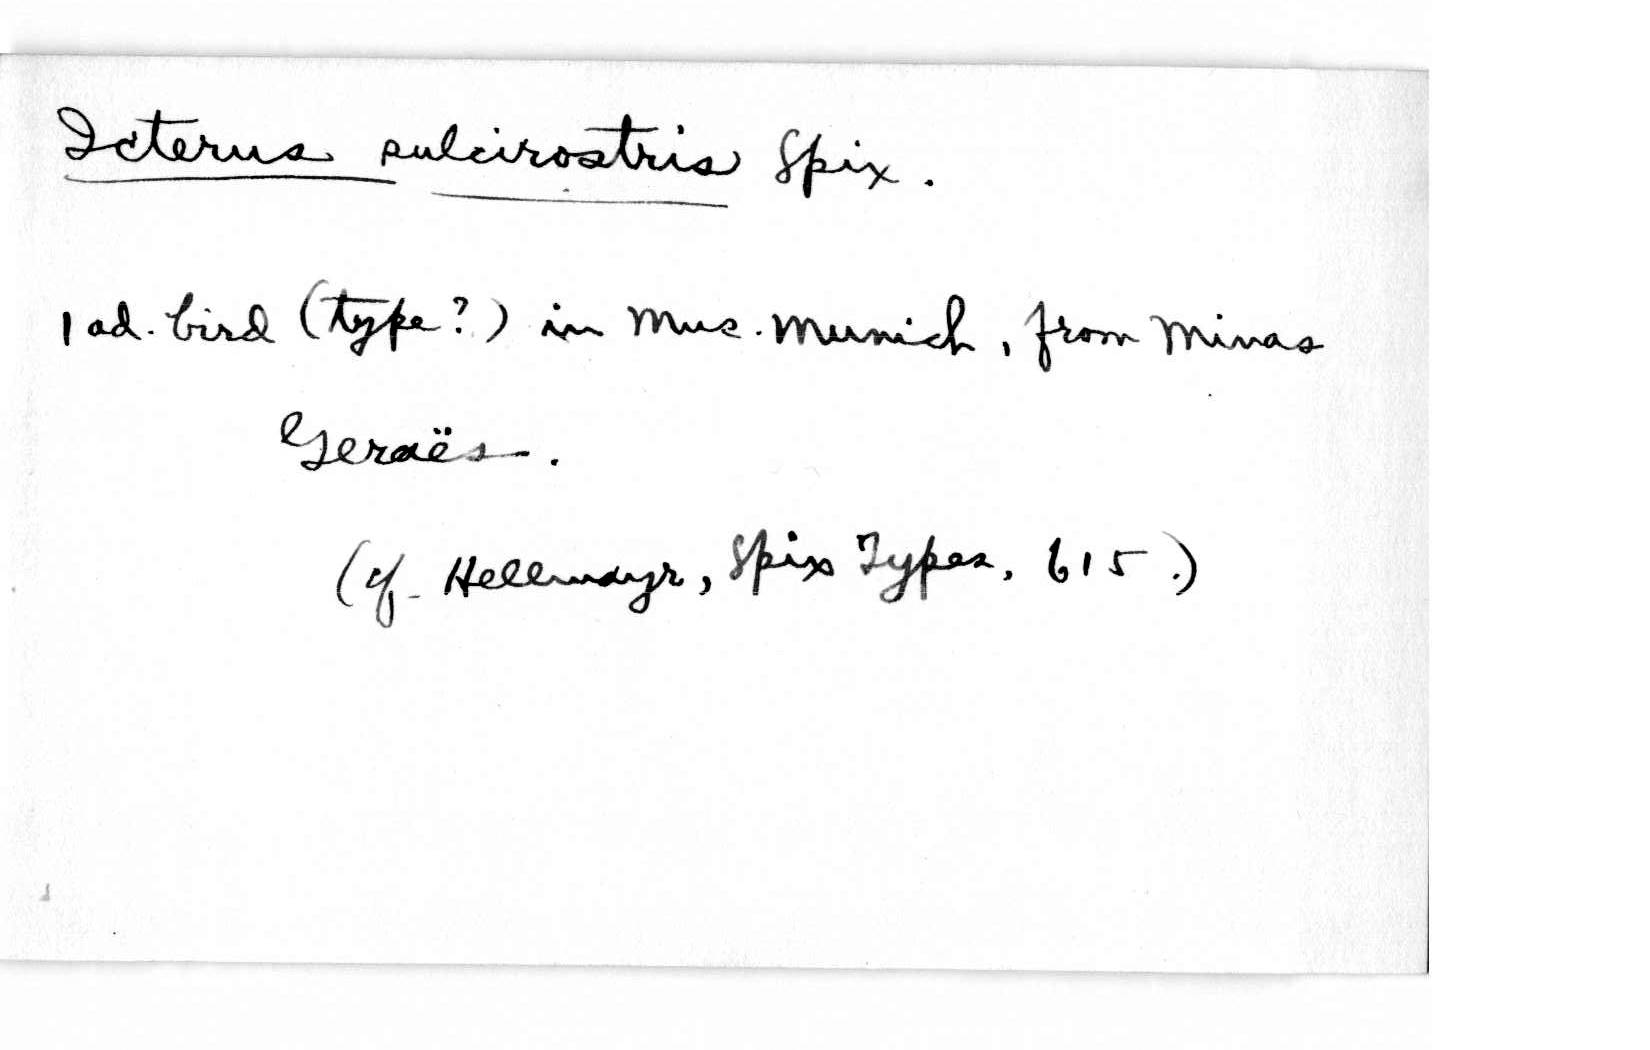 Icterus sulcirostris Spix.
1 ad. bird (type?) in Mus. Munich, from Minas
Geraës.
(cf. Hellmayr, Spix Types, 615.)